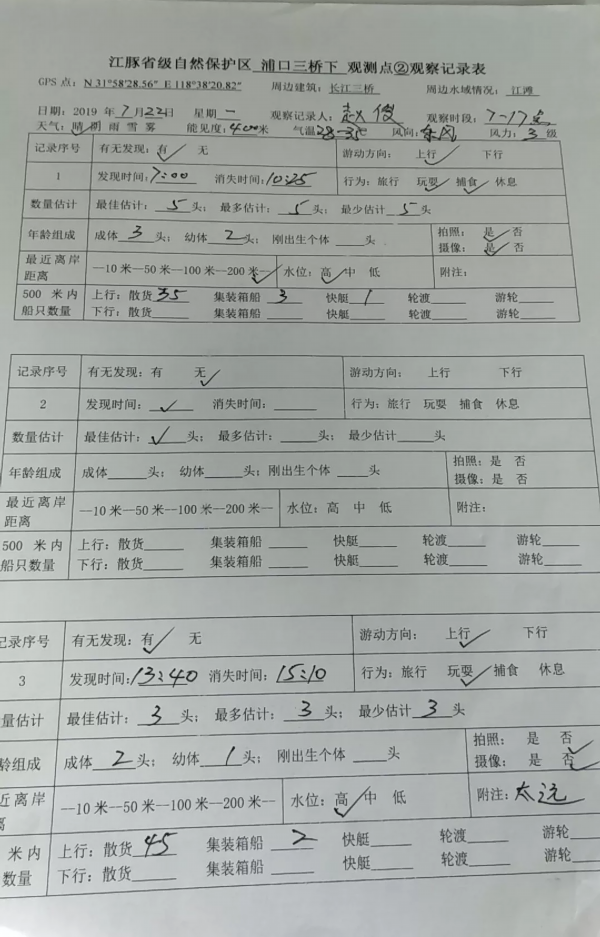 江豚省级自然保护区 浦口三桥下 观测点②观察记录表
GPS 点：N 31°58′28.56″ E 118°38′20.82″ 周边建筑：长江三桥 周边水域情况：江滩
日期：2019 年 7 月 22 日 星期 一 观察记录人：赵俊 观察时段：7-17点
天气：晴 阴 雨 雪 雾 能见度：400米 气温 28-35℃ 风向：东风 风力：3 级
记录序号 有无发现：有 ✓ 无 游动方向： 上行 ✓ 下行
1 发现时间：7:00 消失时间：10:25 行为：旅行 玩耍 ✓ 捕食 ✓ 休息
数量估计 最佳估计： 5 头； 最多估计： 5 头； 最少估计 5 头
年龄组成 成体 3 头； 幼体 2 头； 刚出生个体 头 拍照： 是 ✓ 否
摄像： 是 ✓ 否
最近离岸距离 —10 米—50 米—100 米—200 米— ✓ 水位：高 ✓ 中 低 附注：
500 米内 上行：散货 35 集装箱船 3 快艇 1 轮渡 游轮
船只数量 下行：散货 集装箱船 快艇 轮渡 游轮
记录序号 有无发现：有 无 ✓ 游动方向： 上行 下行
2 发现时间： ✓ 消失时间： 行为：旅行 玩耍 捕食 休息
数量估计 最佳估计： ✓ 头； 最多估计： 头； 最少估计 头
年龄组成 成体 头； 幼体 头；刚出生个体 头 拍照：是 否
摄像：是 否
最近离岸距离 —10 米—50 米--100 米--200 米— 水位：高 中 低 附注：
500 米内 上行：散货 集装箱船 快艇 轮渡 游轮
船只数量 下行：散货 集装箱船 快艇 轮渡 游轮
记录序号 有无发现：有 ✓ 无 游动方向： 上行 ✓ 下行
3 发现时间：13:40 消失时间：15:10 行为：旅行 玩耍 ✓ 捕食 休息
量估计 最佳估计： 3 头； 最多估计： 3 头； 最少估计 3 头
龄组成 成体 2 头； 幼体 1 头； 刚出生个体 头 拍照： 是 否 ✓
摄像： 是 否 ✓
近离岸 --10 米--50 米--100 米--200 米-- 水位：高 ✓ 中 低 附注：太远
米内 上行：散货 45 集装箱船 2 快艇 轮渡 游轮
数量 下行：散货 集装箱船 快艇 轮渡 游轮